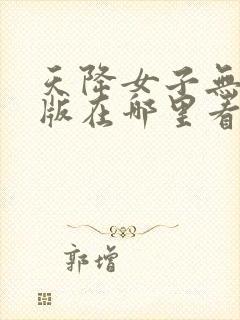 天降女子無
版在哪里看
郭增